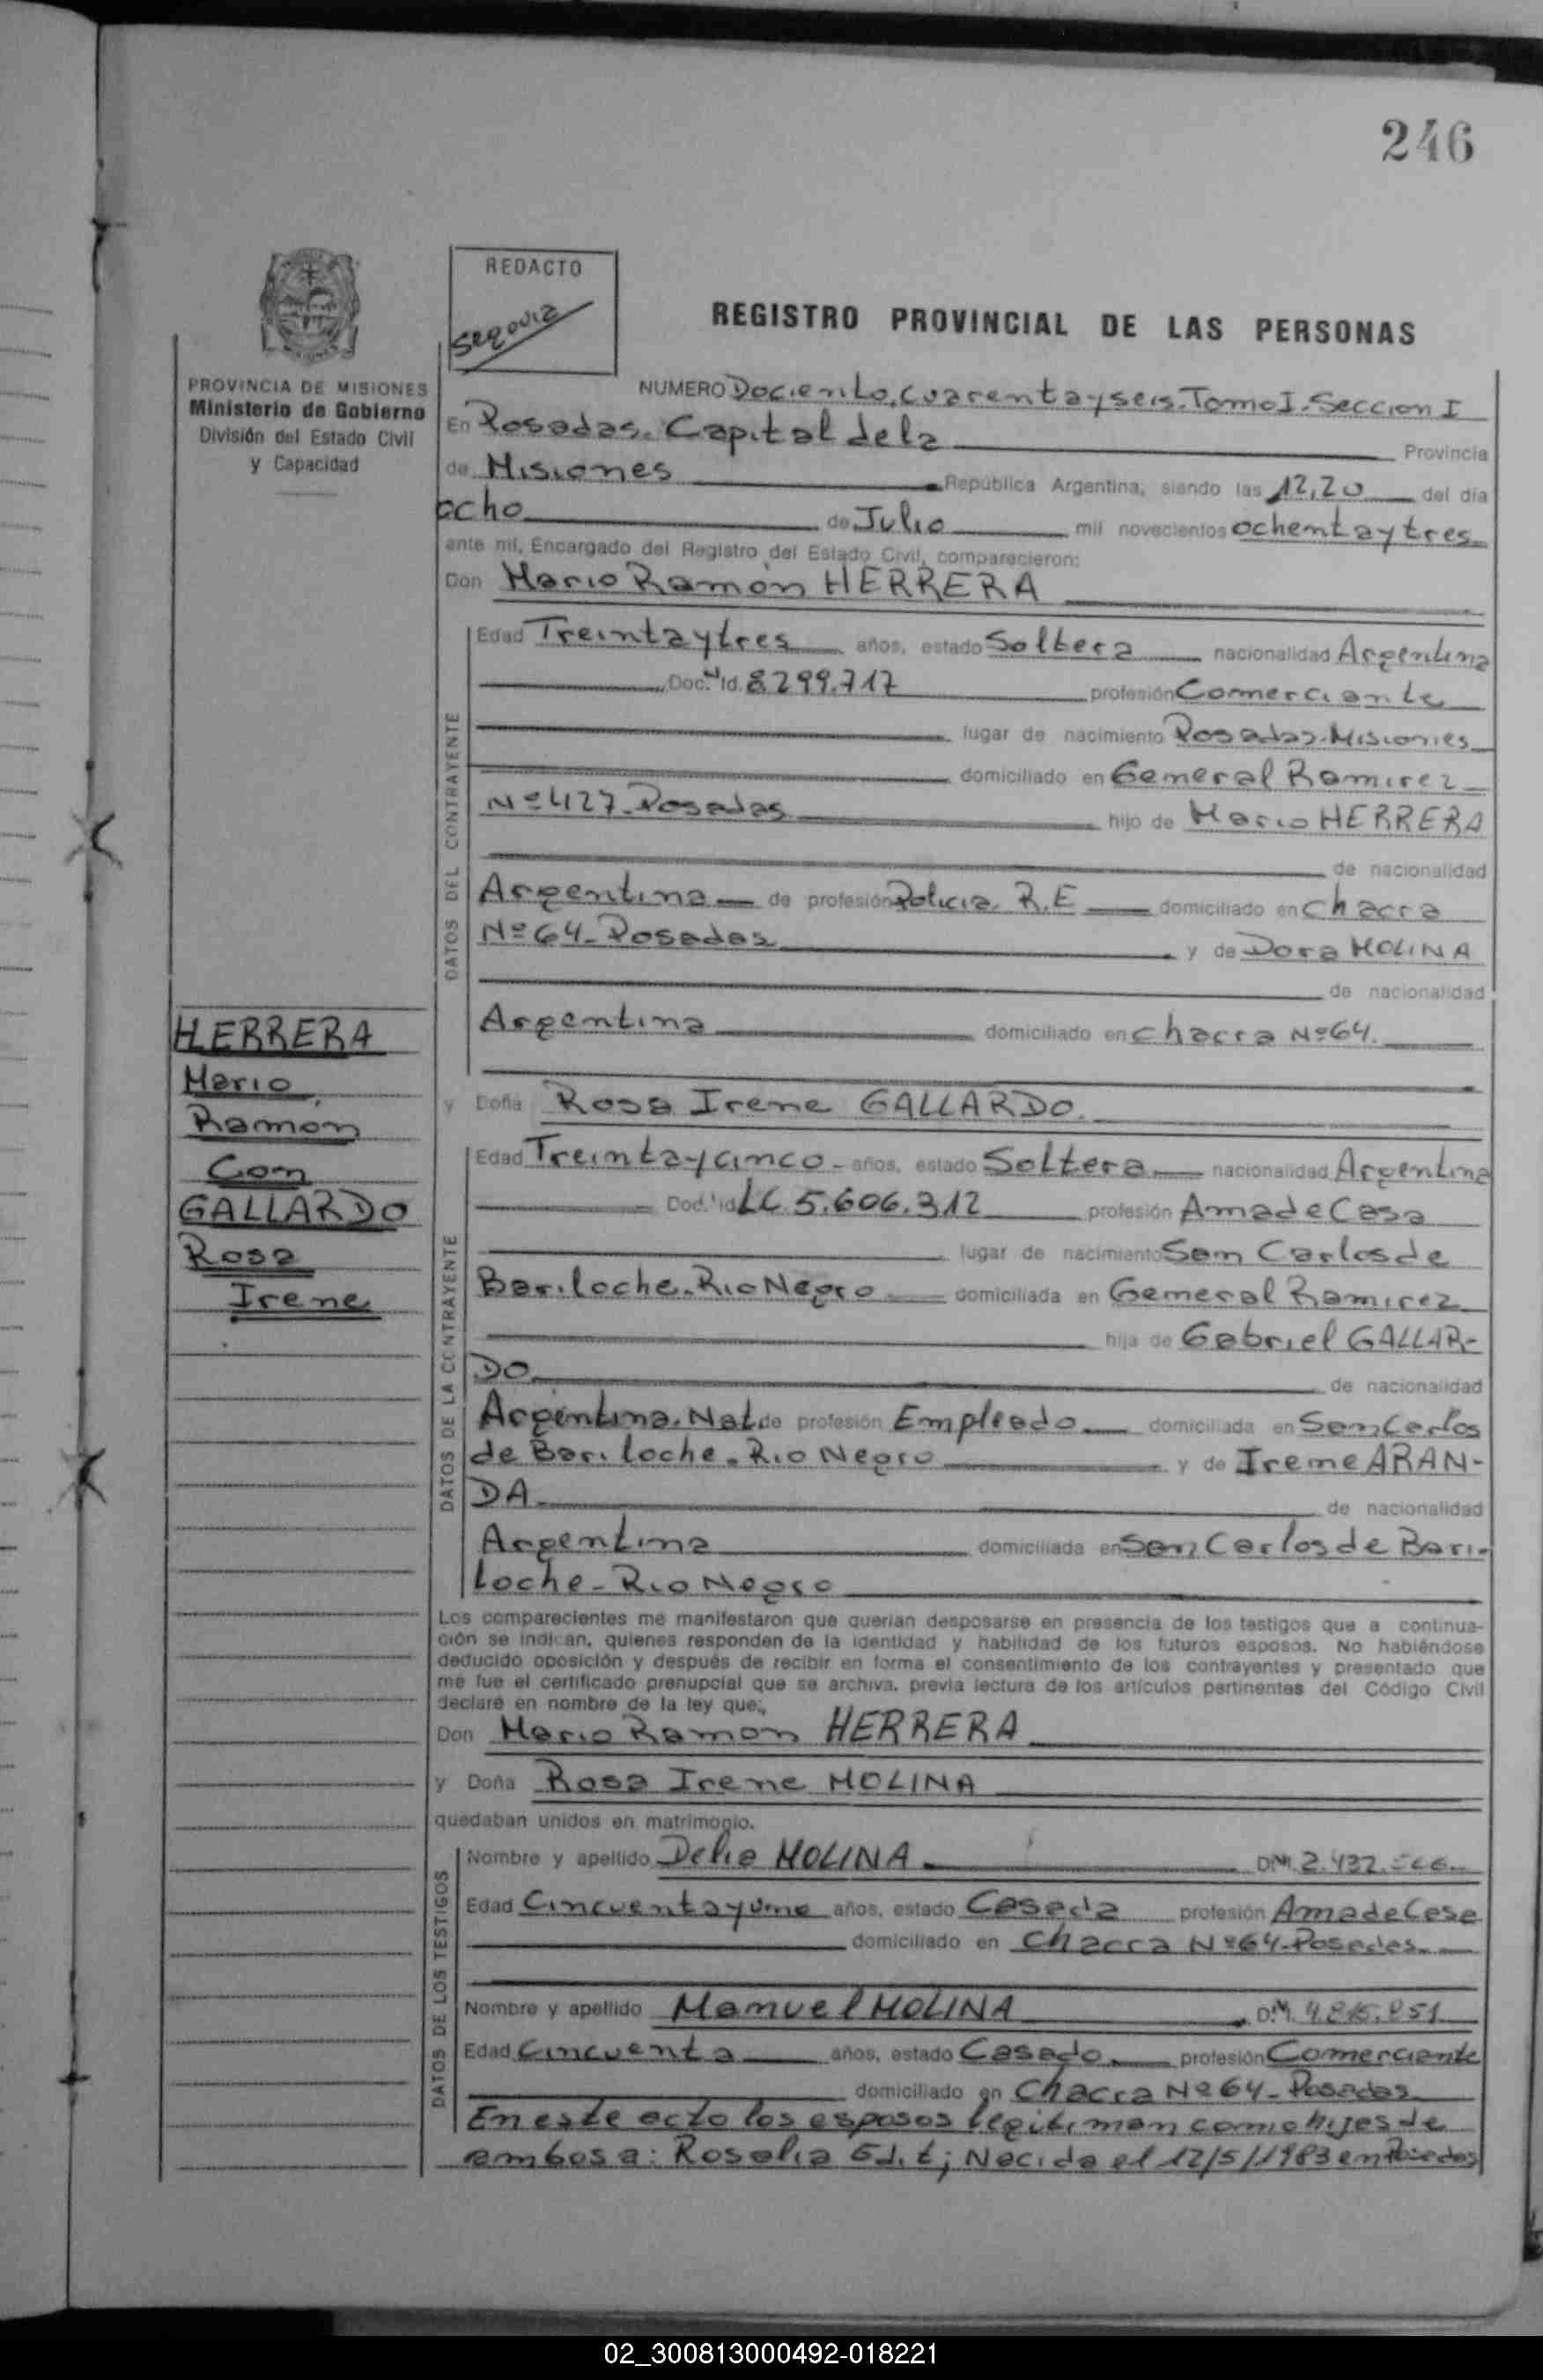 246
REDACTO
Segovia
REGISTRO PROVINCIAL DE LAS PERSONAS
PROVINCIA DE MISIONES
Ministerio de Gobierno
División del Estado Civil
y Capacidad
NUMERO Dociento, Cuarenta y seis. Tomo I. Seccion I
En Posadas. Capital de la Provincia
de Misiones República Argentina, siendo las 12,20 del día
ocho de Julio mil novecientos ochenta y tres
ante mí, Encargado del Registro del Estado Civil, comparecieron:
Don Mario Ramón HERRERA
DATOS DEL CONTRAYENTE
Edad Treinta y tres años, estado Soltera nacionalidad Argentina
Doc. Id. 8.299.717 profesión Comerciante
lugar de nacimiento Posadas. Misiones
domiciliado en General Ramirez
Nº 427. Posadas hijo de Mario HERRERA
de nacionalidad
Argentina de profesión Policia R.E domiciliado en Chacra
Nº 64. Posadas y de Dora MOLINA
de nacionalidad
Argentina domiciliado en Chacra Nº 64.
HERRERA
Mario
Ramon
Con
GALLARDO
Rosa
Irene
y Doña Rosa Irene GALLARDO.
DATOS DE LA CONTRAYENTE
Edad Treinta y cinco años, estado Soltera nacionalidad Argentina
Doc. Id. LC. 5.606.312 profesión Ama de Casa
lugar de nacimiento San Carlos de
Bariloche. Rio Negro domiciliada en General Ramirez
hija de Gabriel GALLAR-
DO de nacionalidad
Argentina. Nat. de profesión Empleado domiciliada en San Carlos
de Bariloche. Rio Negro y de Irene ARAN-
DA de nacionalidad
Argentina domiciliada en San Carlos de Bari-
loche - Rio Negro
Los comparecientes me manifestaron que querían desposarse en presencia de los testigos que a continua-
ción se indican, quienes responden de la identidad y habilidad de los futuros esposos. No habiéndose
deducido oposición y después de recibir en forma el consentimiento de los contrayentes y presentado que
me fue el certificado prenupcial que se archiva, previa lectura de los artículos pertinentes del Código Civil
declaré en nombre de la ley que:
Don Mario Ramon HERRERA
y Doña Rosa Irene MOLINA
quedaban unidos en matrimonio.
DATOS DE LOS TESTIGOS
Nombre y apellido Delia MOLINA DNI. 2.432.
Edad Cincuenta y uno años, estado Casada profesión Ama de Casa
domiciliado en Chacra Nº 64. Posadas
Nombre y apellido Manuel MOLINA D.M. 4.815.851
Edad Cincuenta años, estado Casado profesión Comerciante
domiciliado en Chacra Nº 64. Posadas
En este acto los esposos legitiman como hijes de
ambos a: Rosalia Edit; Nacida el 12/5/1983 en Posadas
02_300813000492-018221